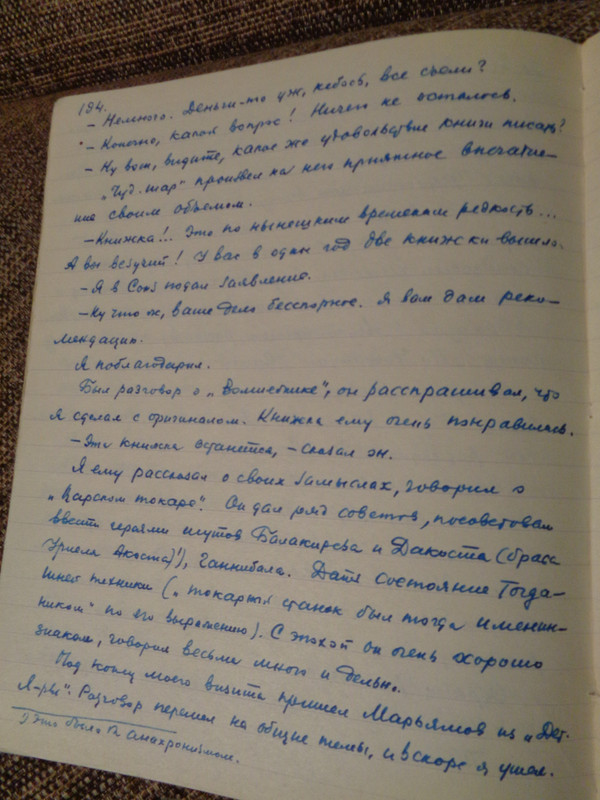 194.
– Немного. Деньги-то уж, небось, все съели?
– Конечно, какой вопрос! Ничего не осталось.
– Ну вот, видите, какое же удовольствие книги писать?
„Чуд. шар" произвел на него приятное впечатле-
ние своим объемом.
– Книжка!.. Это по нынешним временам редкость...
А вы везучий! У вас в один год две книжки вышло.
– Я в Союз подал заявление.
– Ну что ж, ваше дело бесспорное. Я вам дам реко-
мендацию.
Я поблагодарил.
Был разговор о „Волшебнике", он расспрашивал, что
я сделал с оригиналом. Книжка ему очень понравилась.
– Эта книжка останется, – сказал он.
Я ему рассказал о своих замыслах, говорил о
„Царском токаре". Он дал ряд советов, посоветовал
ввести героями шутов Балакирева и Дакоста (брата
Уриеля Акоста)¹), Ганнибала. Дать состояние тогда-
шней техники („токарный станок был тогда именин-
ником" по его выражению). С эпохой он очень хорошо
знаком, говорил весьма много и дельно.
Под конец моего визита пришел Марьямов из „Дет.
Л-ры". Разговор перешел на общие темы, и вскоре я ушел.
¹ Это было бы анахронизмом.